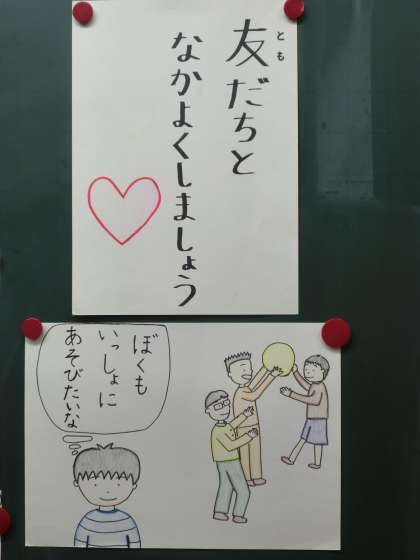 友だちと
とも
なかよくしましょう
ぼくも
いっしょに
あそびたいな